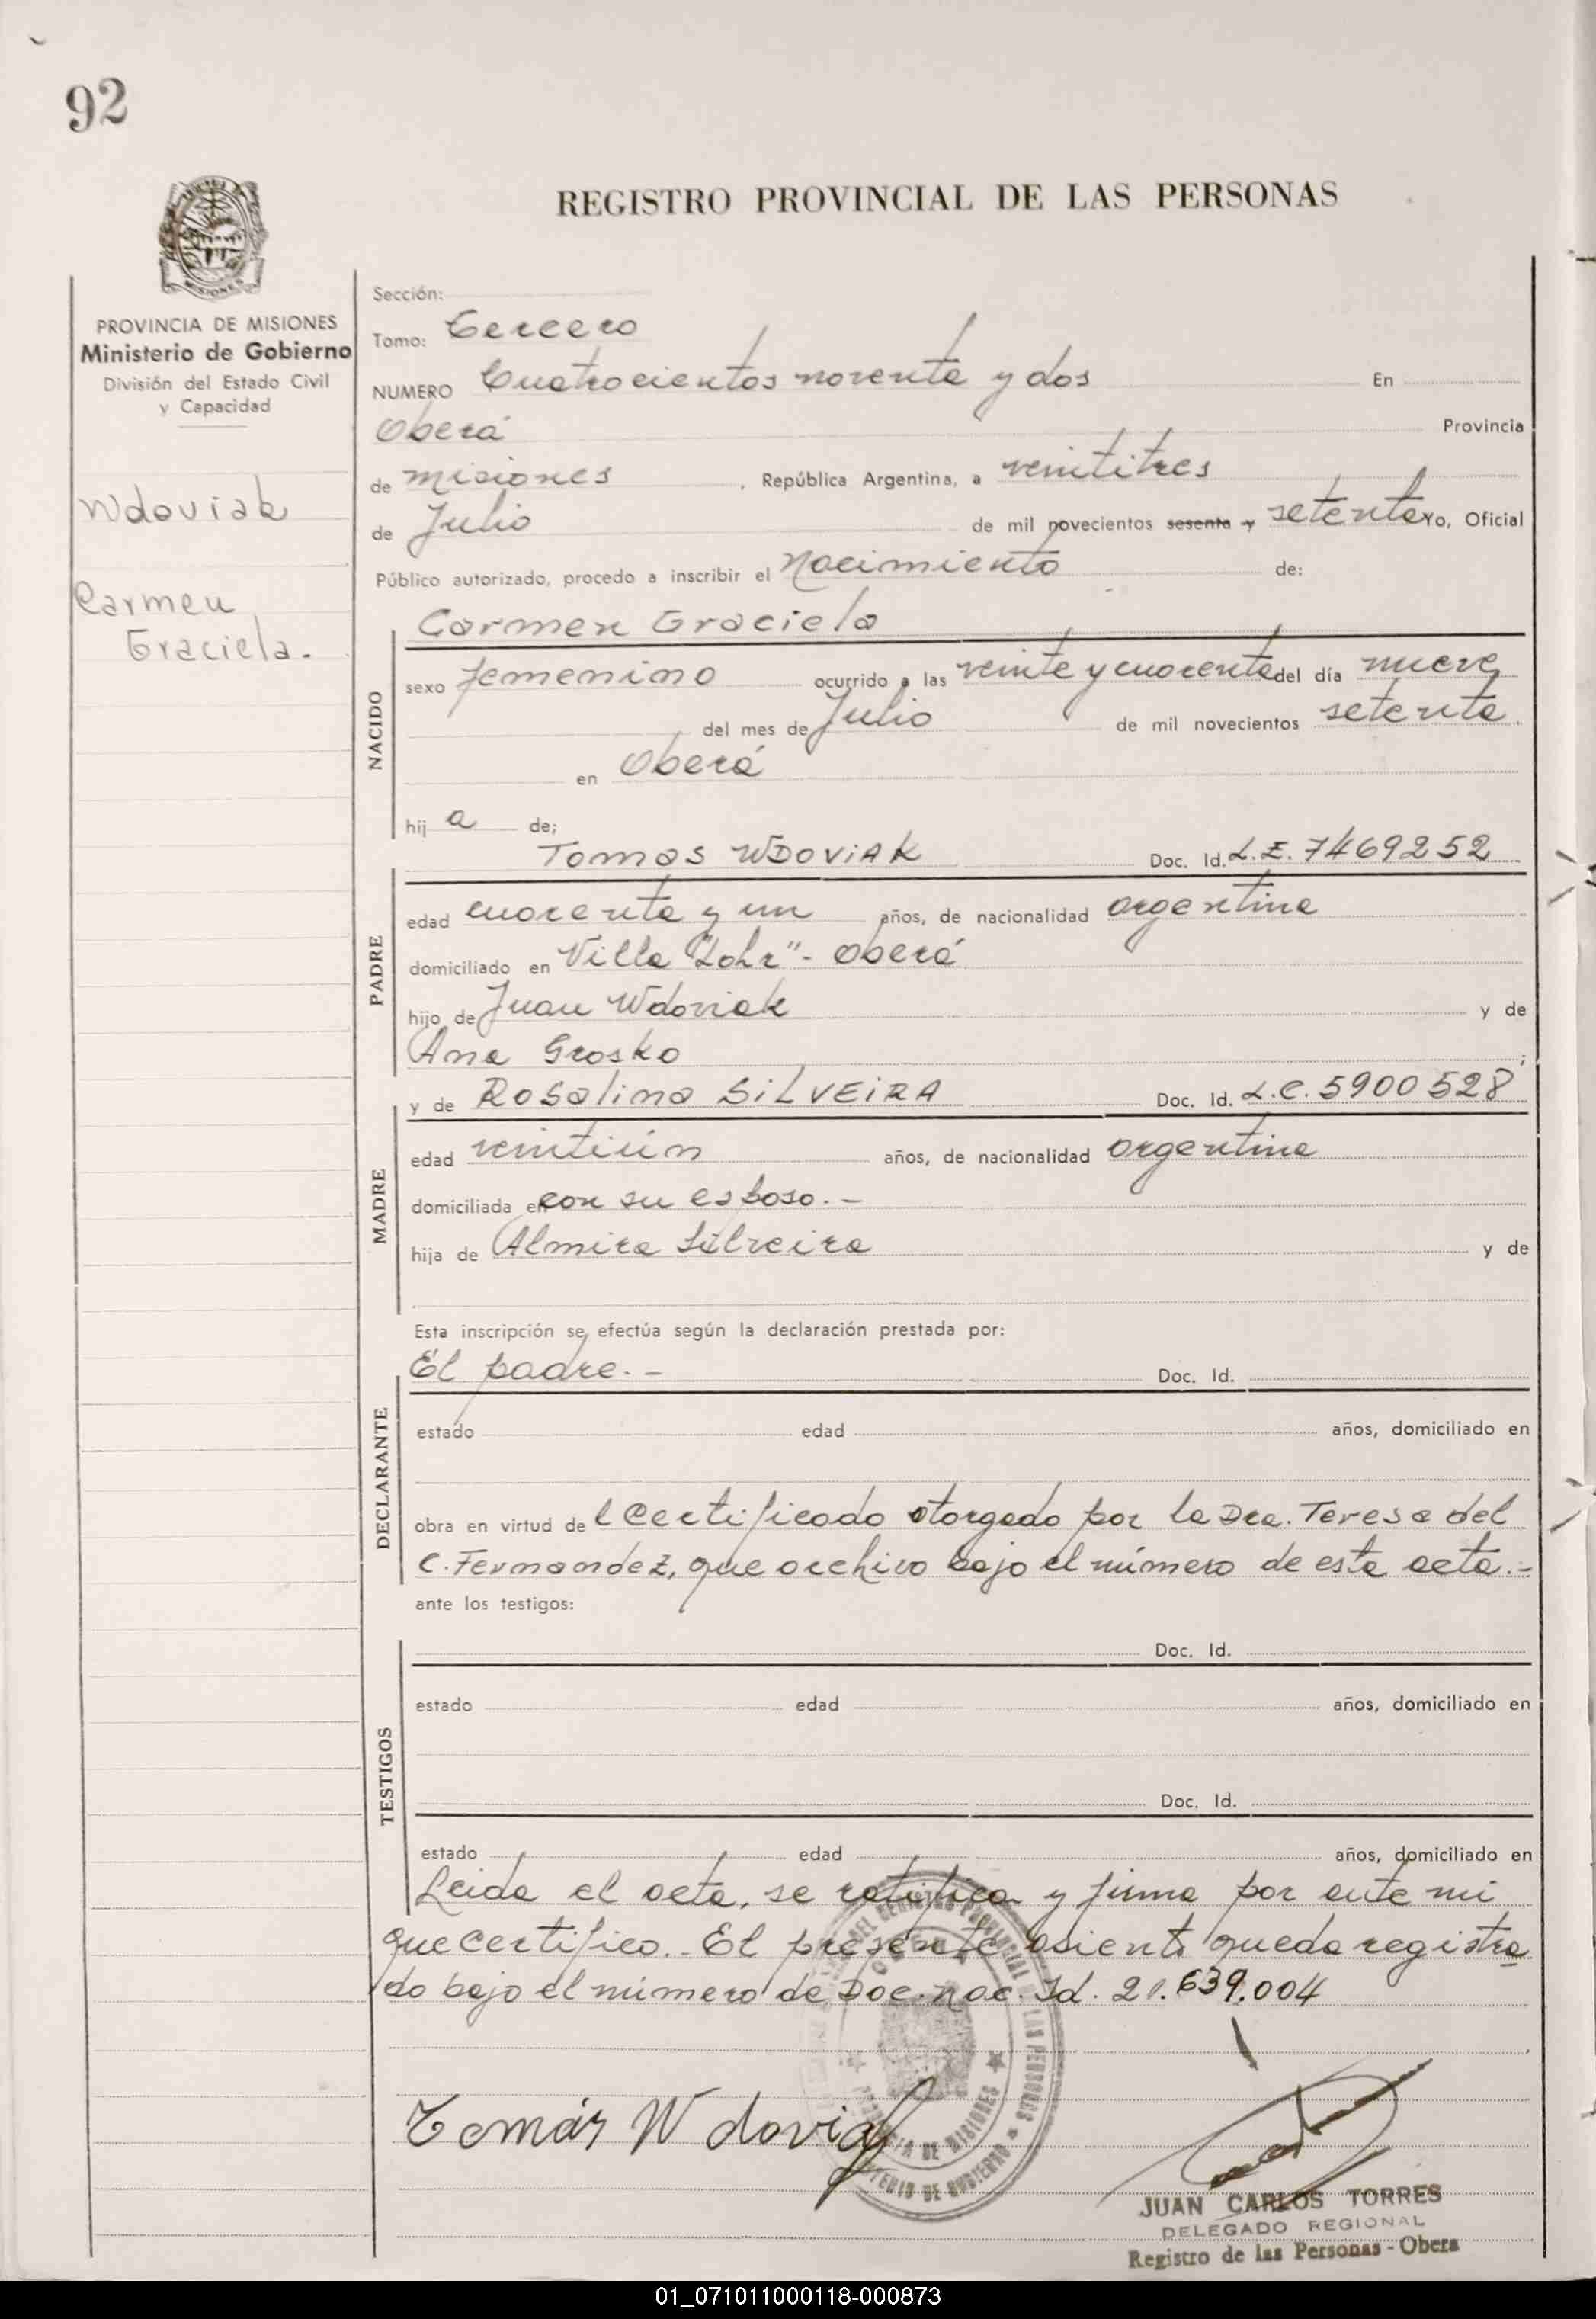 92
REGISTRO PROVINCIAL DE LAS PERSONAS
MISIONES
PROVINCIA DE MISIONES
Ministerio de Gobierno
División del Estado Civil
y Capacidad
Wdoviak
Carmen
Graciela.
Sección:
Tomo: Tercero
NUMERO Cuatrocientos noventa y dos En
Oberá Provincia
de misiones, República Argentina, a veintitres
de Julio de mil novecientos sesenta y setenta Yo, Oficial
Público autorizado, procedo a inscribir el Nacimiento de:
Carmen Graciela
NACIDO
sexo femenino ocurrido a las veinte y cuarenta del día nueve
del mes de Julio de mil novecientos setenta
en Oberá
hij a de;
Tomas WDOVIAK Doc. Id. L.E. 7469252
PADRE
edad cuarenta y un años, de nacionalidad argentina
domiciliado en Villa "Lohr"- Oberá
hijo de Juan Wdoviak y de
Ana Grosko ;
y de Rosalina SILVEIRA Doc. Id. L.C. 5900528
MADRE
edad veintiún años, de nacionalidad argentina
domiciliada en con su esposo.-
hija de Almira Silveira y de
Esta inscripción se efectúa según la declaración prestada por:
El padre.- Doc. Id.
DECLARANTE
estado edad años, domiciliado en
obra en virtud de l Certificado otorgado por la Dra. Teresa del
C. Fernandez, que archivo bajo el número de esta acta.-
ante los testigos:
Doc. Id.
TESTIGOS
estado edad años, domiciliado en
Doc. Id.
estado edad años, domiciliado en
Leida el acta, se ratifica y firma por ante mi
que certifico.. El presente asiento queda registra
do bajo el número de Doc. nac. Id. 21.639.004
Tomás Wdoviak
JUAN CARLOS TORRES
DELEGADO REGIONAL
Registro de las Personas - Obera
01_071011000118-000873